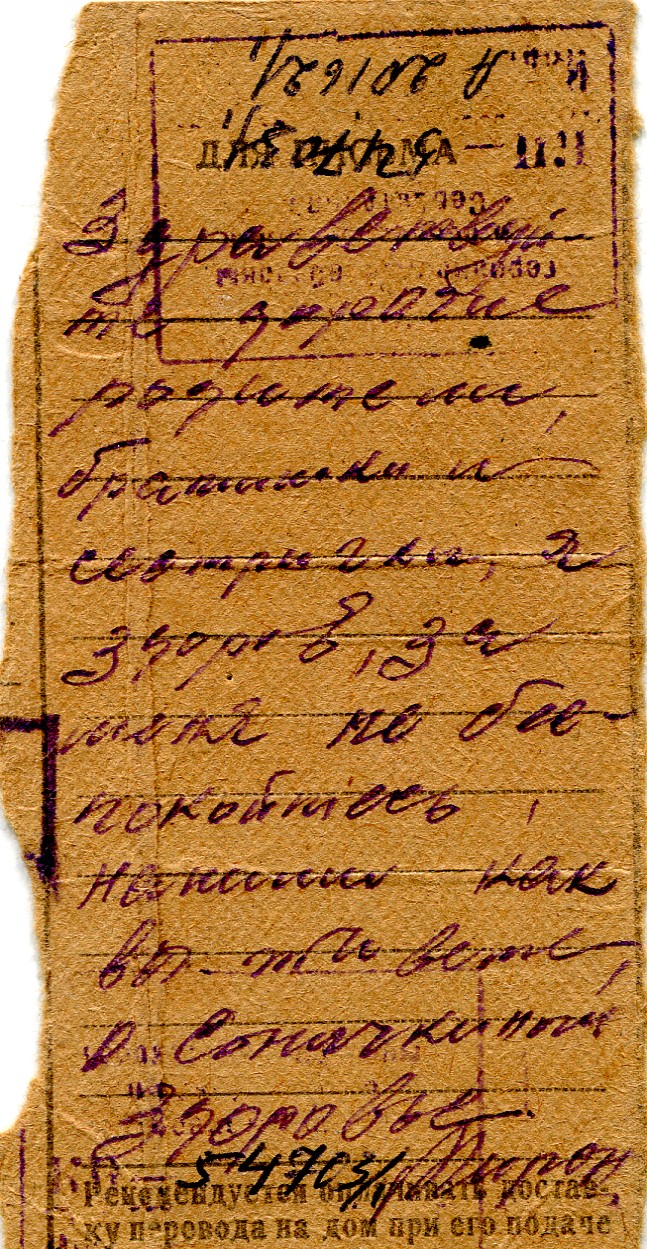 А 20162/
ДЛЯ ПИСЬМА
Здравствуй
те дорогие
родители,
братишки и
сестрички, я
здоров, за
меня не бес-
покойтесь,
напиши как
вы живете,
о Соничкином
здоровье.
54703/ Мирон
Рекомендуется оплачивать достав-
ку перевода на дом при его подаче